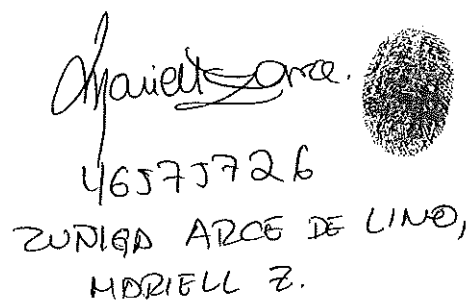 Mariell Z Arce.
46575726
ZUÑIGA ARCE DE LINO,
MARIELL Z.